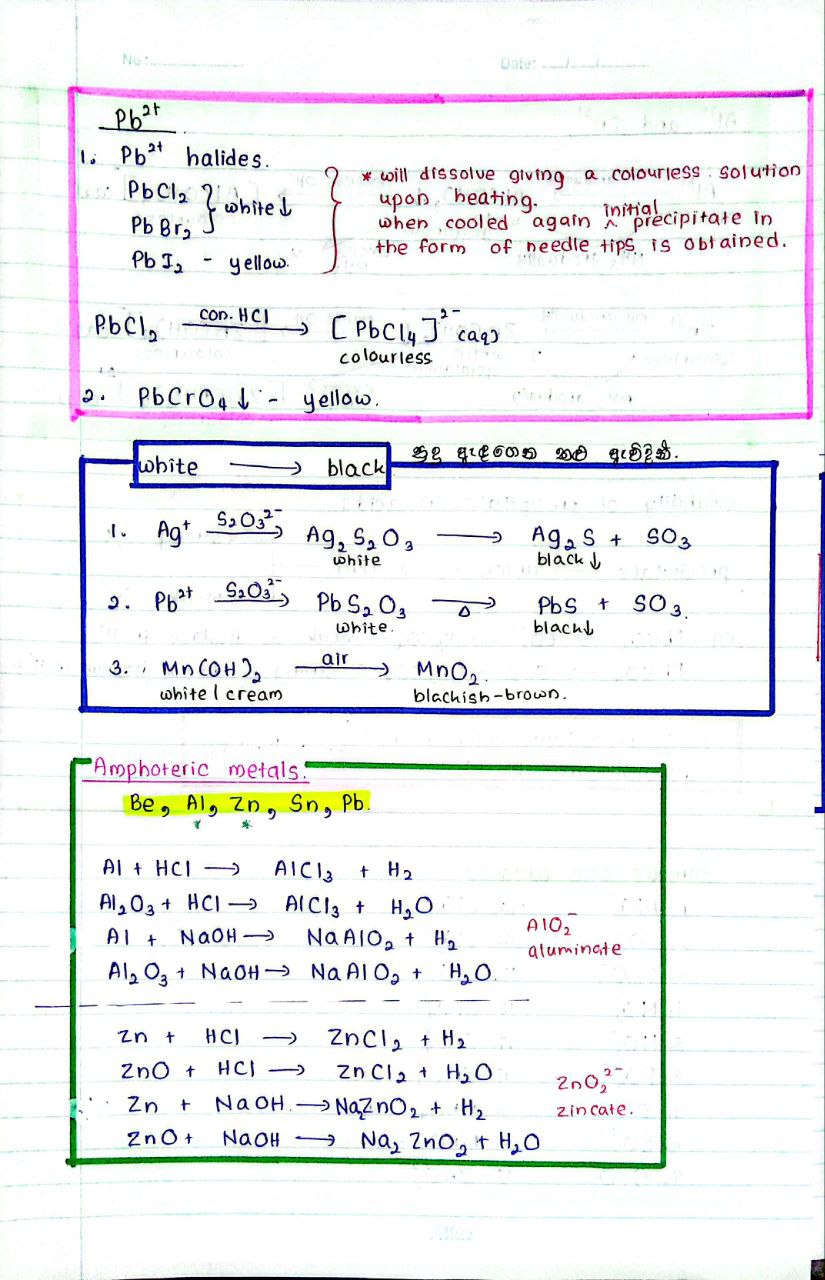 No: Date:
Pb²⁺
1. Pb²⁺ halides.
PbCl₂ } white↓
PbBr₂
PbI₂ - yellow.
* will dissolve giving a colourless solution
upon heating.
when cooled again initial precipitate in
the form of needle tips, is obtained.
PbCl₂ —con. HCl→ [PbCl₄]²⁻ (aq)
colourless
2. PbCrO₄↓ - yellow.
white → black
සුදු ඇඳගෙන කළු ඇවිදින්.
1. Ag⁺ —S₂O₃²⁻→ Ag₂S₂O₃ → Ag₂S + SO₃
white black↓
2. Pb²⁺ —S₂O₃²⁻→ PbS₂O₃ —Δ→ PbS + SO₃.
white. black↓
3. Mn(OH)₂ —air→ MnO₂.
white / cream blackish-brown.
Amphoteric metals.
Be, Al, Zn, Sn, Pb.
* *
Al + HCl → AlCl₃ + H₂
Al₂O₃ + HCl → AlCl₃ + H₂O
Al + NaOH → NaAlO₂ + H₂
Al₂O₃ + NaOH → NaAlO₂ + H₂O.
AlO₂⁻
aluminate
Zn + HCl → ZnCl₂ + H₂
ZnO + HCl → ZnCl₂ + H₂O
Zn + NaOH → Na₂ZnO₂ + H₂
ZnO + NaOH → Na₂ZnO₂ + H₂O
ZnO₂²⁻
zincate.